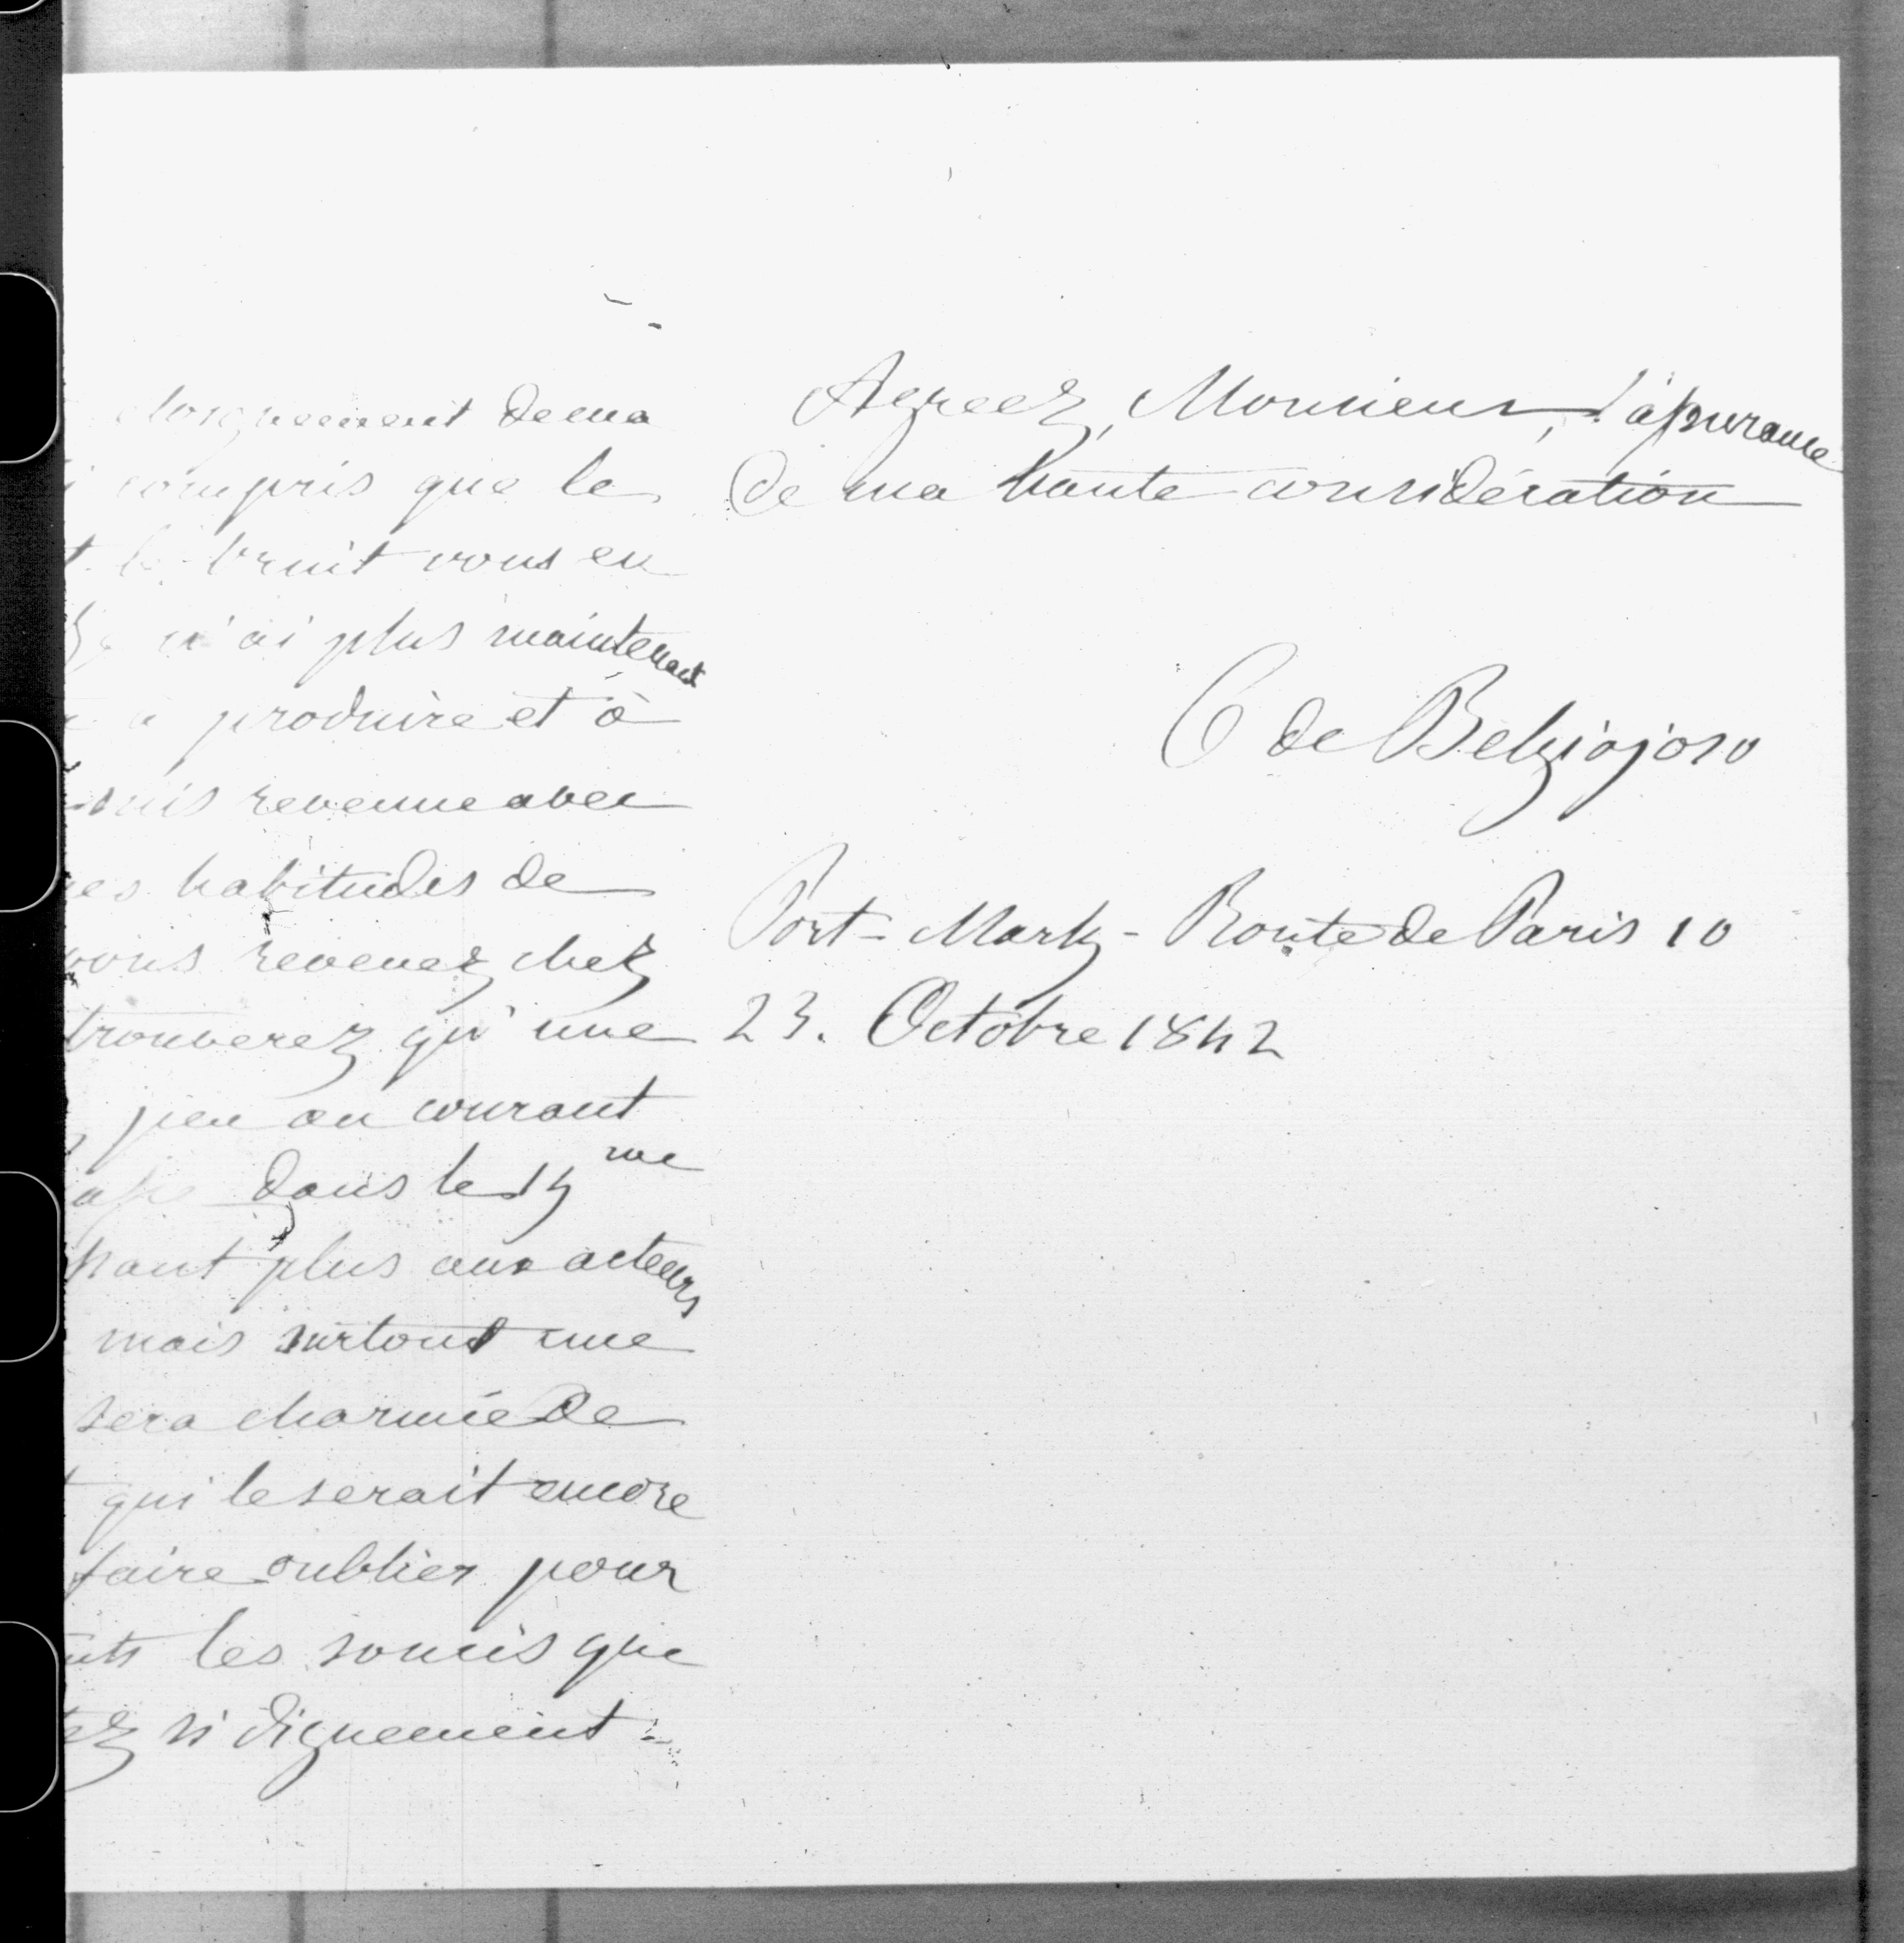 éloignement de ma
compris que le
le bruit vous en
n'ai plus maintenant
à produire et à
suis revenue avec
habitudes de
vous revenez chez
trouverez qu'une
peu au courant
dans le 15me
plus aux acteurs
mais surtout une
sera charmée de
qui le serait encore
faire oublier pour
les soucis que
si dignement.
Agreez, Monsieur, l'assurance
de ma haute considération
C de Belgiojoso
Port-Marly - Route de Paris 10
23. Octobre 1842